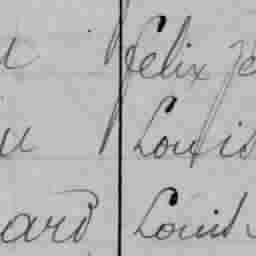 u felix Je
u Louis
ard Louis